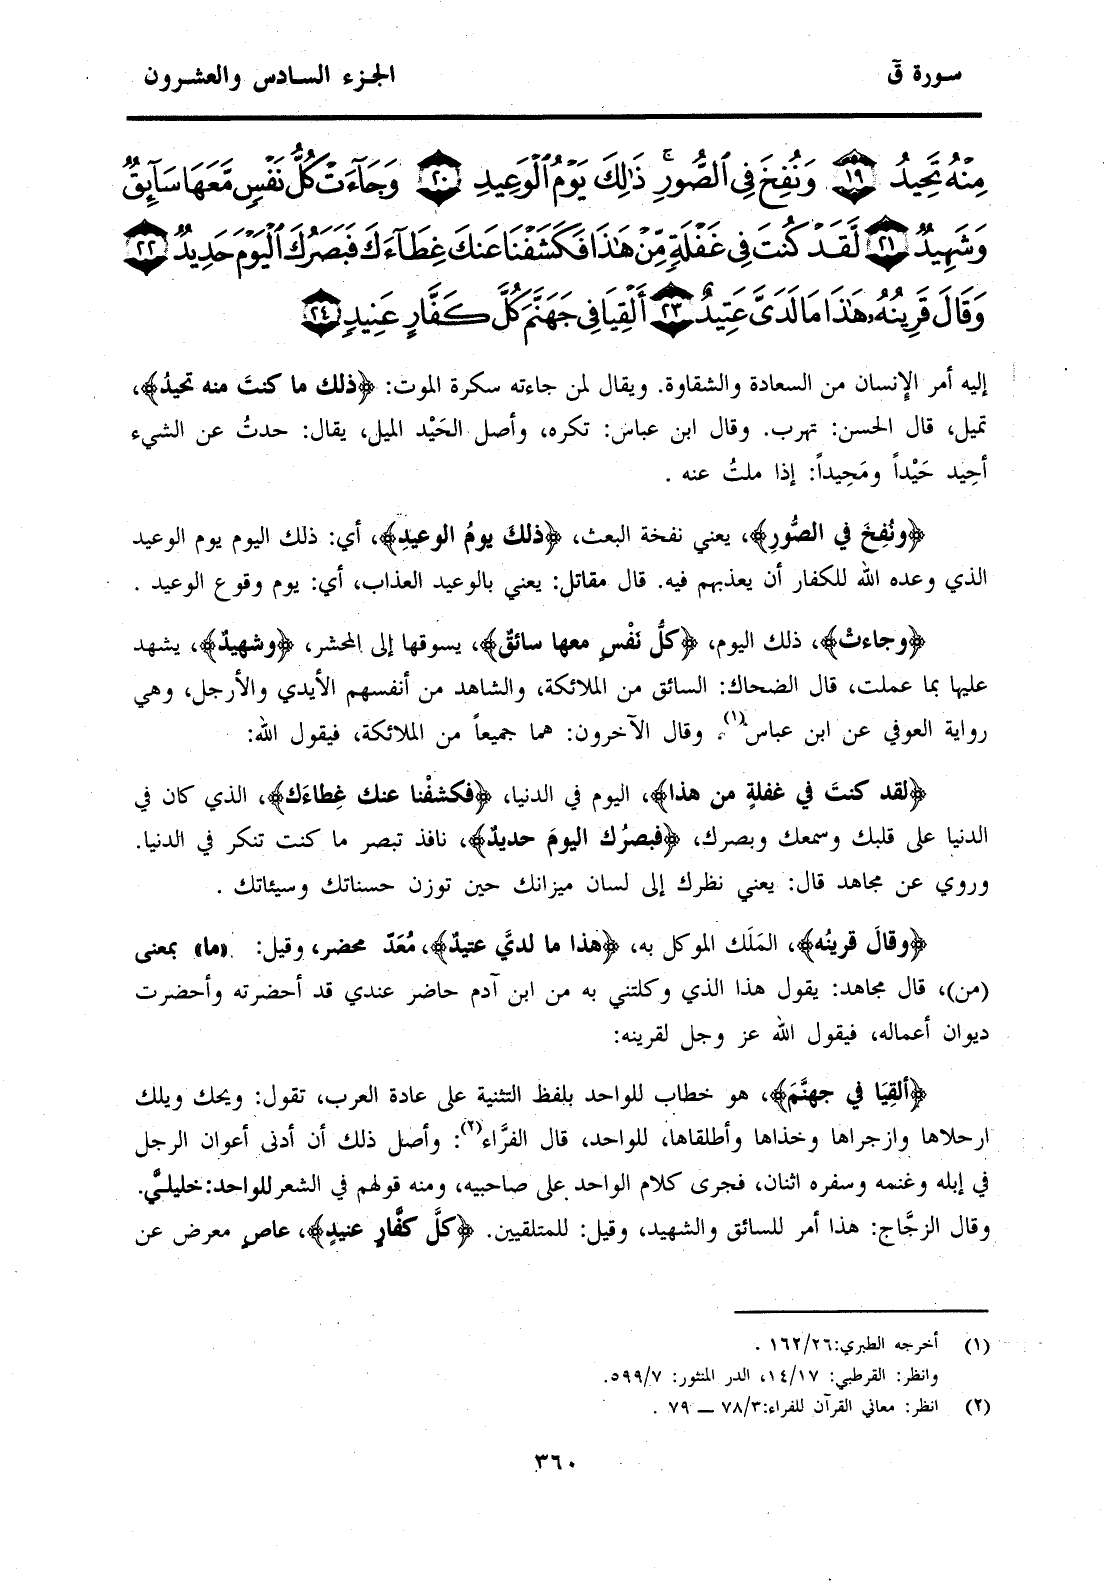 سورة قٓ
الجزء السادس والعشرون
مِنْهُ تَحِيدُ ١٩ وَنُفِخَ فِى ٱلصُّورِ ۚ ذَٰلِكَ يَوْمُ ٱلْوَعِيدِ ٢٠ وَجَآءَتْ كُلُّ نَفْسٍ مَّعَهَا سَآئِقٌ
وَشَهِيدٌ ٢١ لَّقَدْ كُنتَ فِى غَفْلَةٍ مِّنْ هَٰذَا فَكَشَفْنَا عَنكَ غِطَآءَكَ فَبَصَرُكَ ٱلْيَوْمَ حَدِيدٌ ٢٢
وَقَالَ قَرِينُهُۥ هَٰذَا مَا لَدَىَّ عَتِيدٌ ٢٣ أَلْقِيَا فِى جَهَنَّمَ كُلَّ كَفَّارٍ عَنِيدٍ ٢٤
إليه أمر الإنسان من السعادة والشقاوة. ويقال لمن جاءته سكرة الموت: ﴿ذلك ما كنتَ منه تحيدُ﴾،
تميل، قال الحسن: تهرب. وقال ابن عباس: تكره، وأصل الحَيْد الميل، يقال: حدتُ عن الشيء
أحِيد حَيْداً ومَحِيداً: إذا ملتُ عنه .
﴿ونُفِخَ في الصُّورِ﴾، يعني نفخة البعث، ﴿ذلكَ يومُ الوعيدِ﴾، أي: ذلك اليوم يوم الوعيد
الذي وعده الله للكفار أن يعذبهم فيه. قال مقاتل: يعني بالوعيد العذاب، أي: يوم وقوع الوعيد .
﴿وجاءتْ﴾، ذلك اليوم، ﴿كلُّ نَفْسٍ معها سائقٌ﴾، يسوقها إلى المحشر، ﴿وشهيدٌ﴾، يشهد
عليها بما عملت، قال الضحاك: السائق من الملائكة، والشاهد من أنفسهم الأيدي والأرجل، وهي
رواية العوفي عن ابن عباس(١). وقال الآخرون: هما جميعاً من الملائكة، فيقول الله:
﴿لقد كنتَ في غفلةٍ من هذا﴾، اليوم في الدنيا، ﴿فكشفْنا عنك غِطاءَك﴾، الذي كان في
الدنيا على قلبك وسمعك وبصرك، ﴿فبصرُك اليومَ حديدٌ﴾، نافذ تبصر ما كنت تنكر في الدنيا.
وروي عن مجاهد قال: يعني نظرك إلى لسان ميزانك حين توزن حسناتك وسيئاتك .
﴿وقالَ قرينُه﴾، المَلَك الموكل به، ﴿هذا ما لديَّ عتيدٌ﴾، مُعَدّ محضر، وقيل: «ما» بمعنى
(من)، قال مجاهد: يقول هذا الذي وكلتني به من ابن آدم حاضر عندي قد أحضرته وأحضرت
ديوان أعماله، فيقول الله عز وجل لقرينه:
﴿ألقِيَا في جهنَّمَ﴾، هو خطاب للواحد بلفظ التثنية على عادة العرب، تقول: ويحك ويلك
ارحلاها وازجراها وخذاها وأطلقاها، للواحد، قال الفرَّاء(٢): وأصل ذلك أن أدنى أعوان الرجل
في إبله وغنمه وسفره اثنان، فجرى كلام الواحد على صاحبيه، ومنه قولهم في الشعر للواحد: خليليَّ.
وقال الزجَّاج: هذا أمر للسائق والشهيد، وقيل: للمتلقيين. ﴿كلَّ كفَّارٍ عنيدٍ﴾، عاصٍ معرض عن
(١) أخرجه الطبري: ١٦٢/٢٦ .
وانظر: القرطبي: ١٤/١٧، الدر المنثور: ٥٩٩/٧.
(٢) انظر: معاني القرآن للفراء: ٧٨/٣ ــ ٧٩ .
٣٦٠